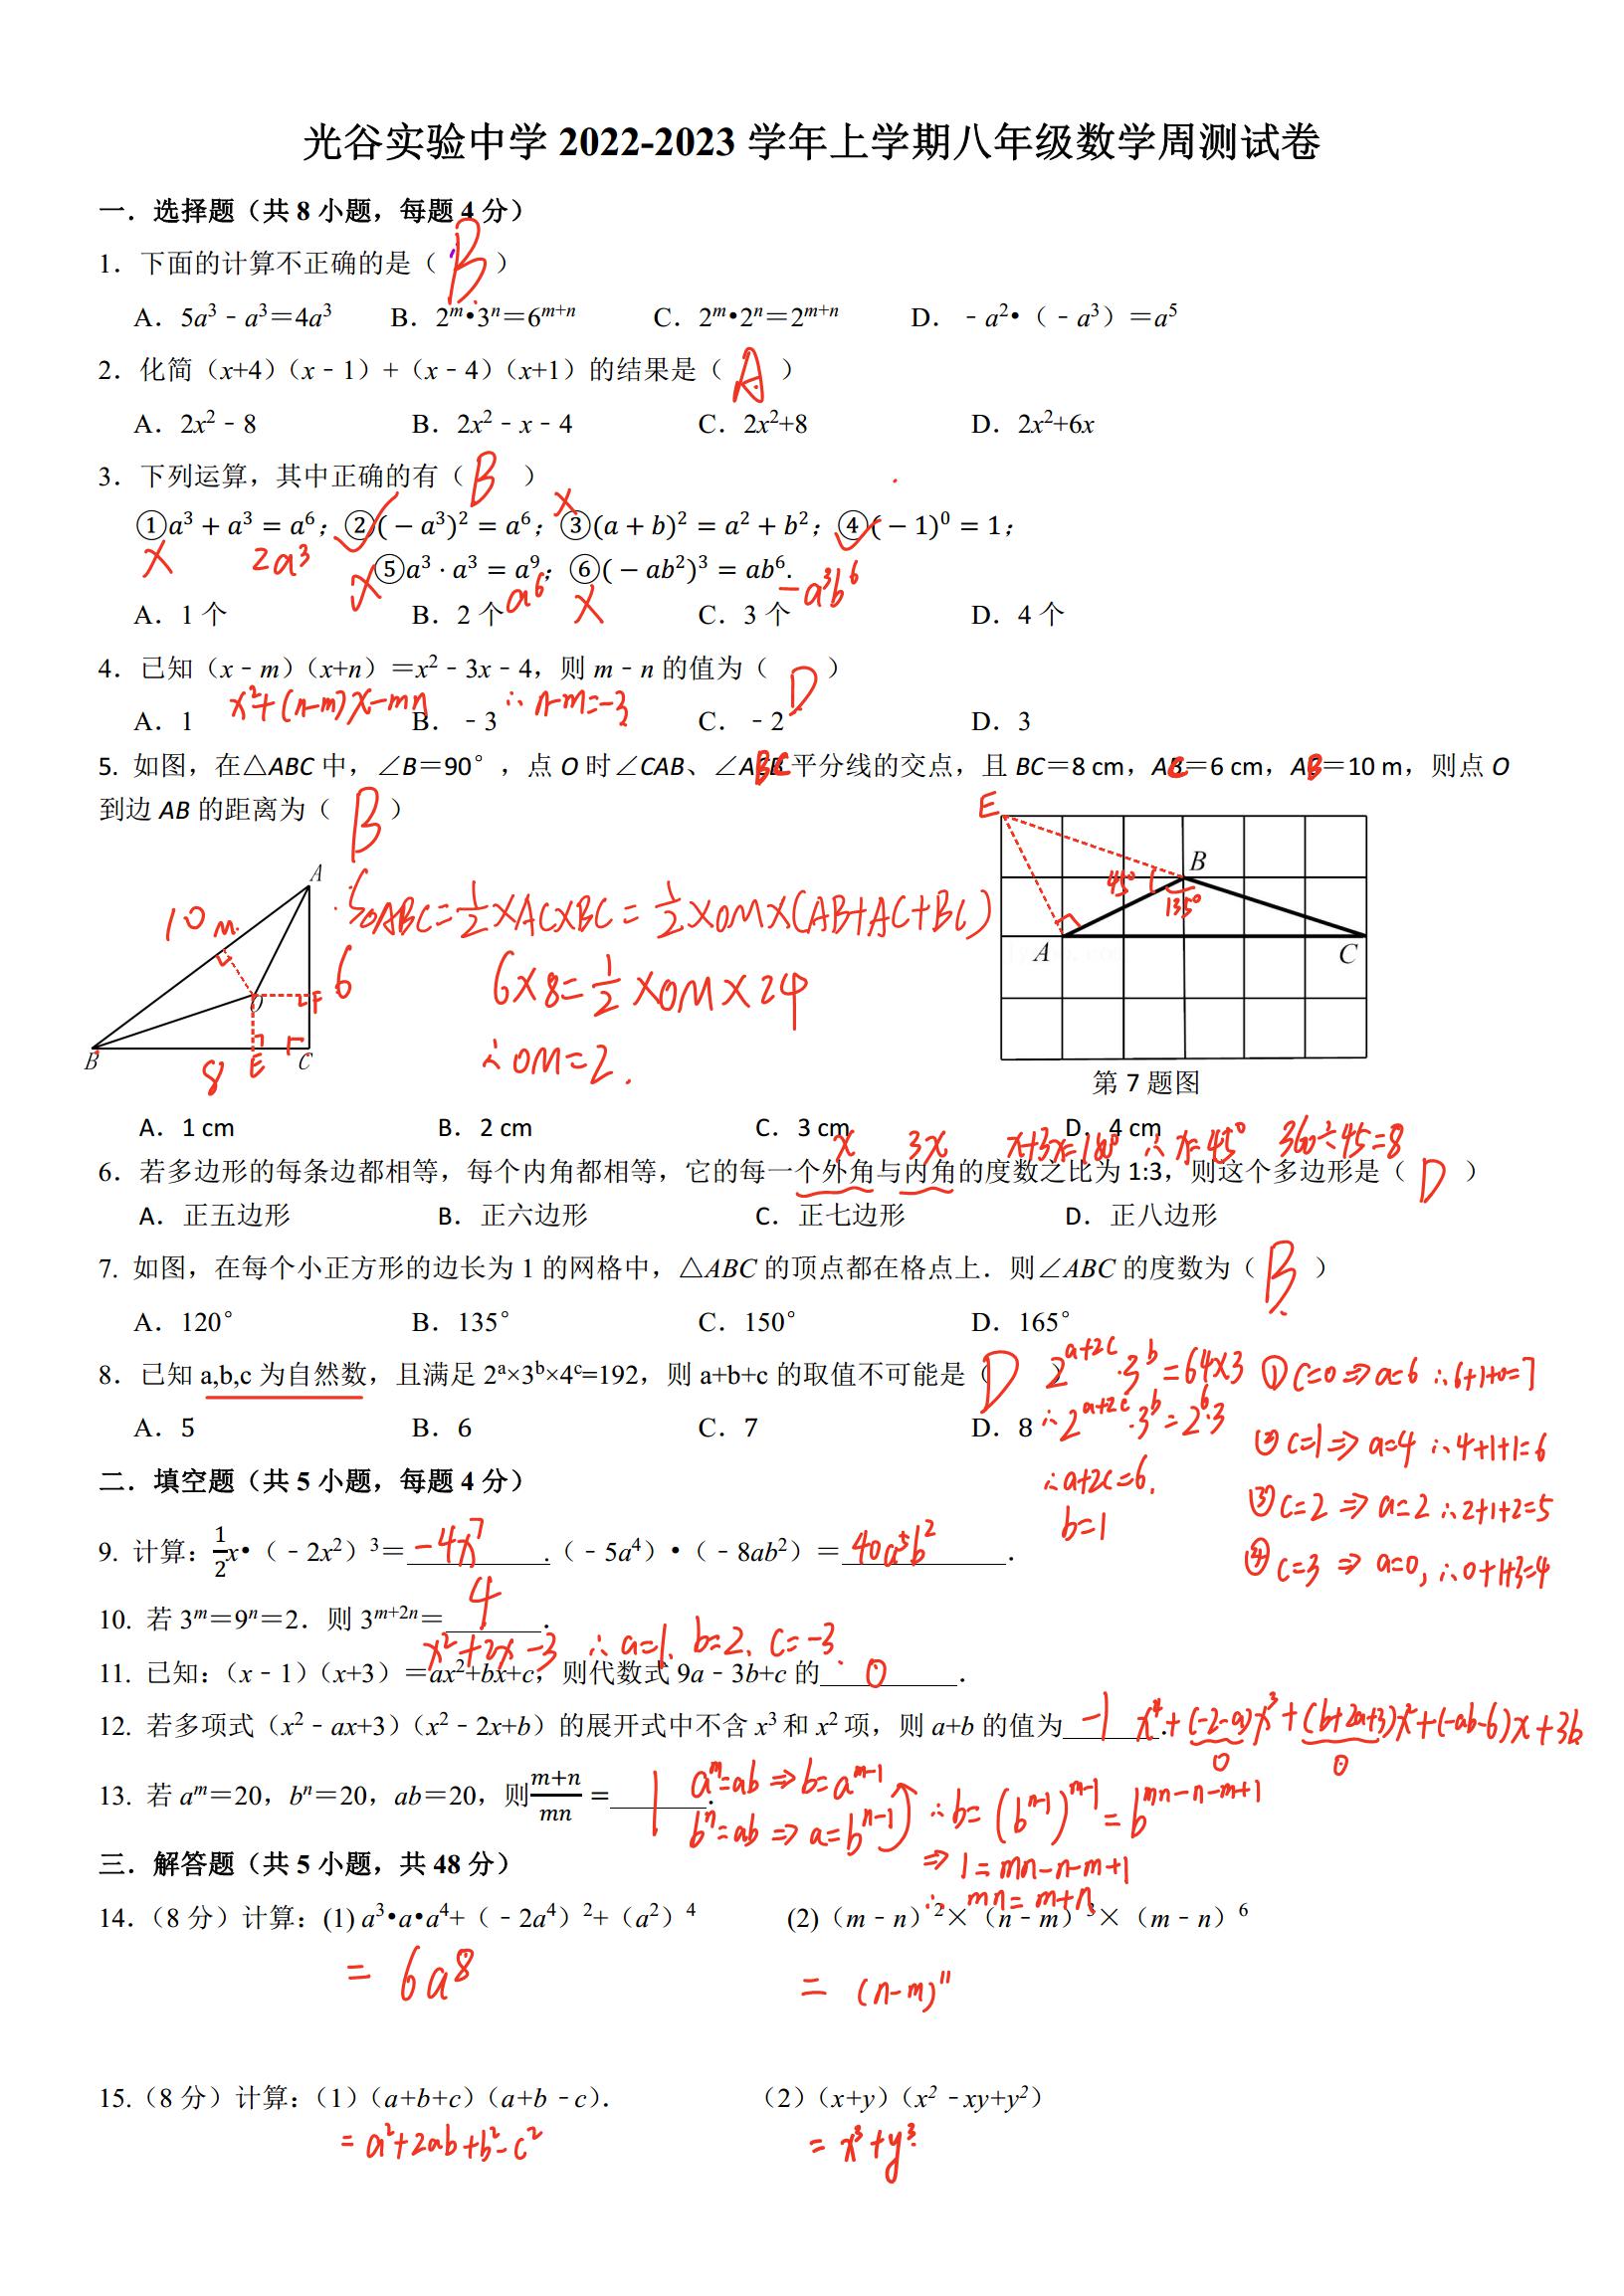 光谷实验中学 2022-2023 学年上学期八年级数学周测试卷
一．选择题（共 8 小题，每题 4 分）
1．下面的计算不正确的是（ B ）
A．5a³﹣a³＝4a³ B．2ᵐ•3ⁿ＝6ᵐ⁺ⁿ C．2ᵐ•2ⁿ＝2ᵐ⁺ⁿ D．﹣a²•（﹣a³）＝a⁵
2．化简（x+4）（x﹣1）+（x﹣4）（x+1）的结果是（ A ）
A．2x²﹣8 B．2x²﹣x﹣4 C．2x²+8 D．2x²+6x
3．下列运算，其中正确的有（ B ）
①a³ + a³ = a⁶；②(− a³)² = a⁶；③(a + b)² = a² + b²；④(− 1)⁰ = 1；
X 2a³ ✓ X ✓
⑤a³ · a³ = a⁹；⑥(− ab²)³ = ab⁶.
X a⁶ X −a³b⁶
A．1 个 B．2 个 C．3 个 D．4 个
4．已知（x﹣m）（x+n）＝x²﹣3x﹣4，则 m﹣n 的值为（ D ）
x²+(n-m)x-mn ∴n-m=-3
A．1 B．﹣3 C．﹣2 D．3
5. 如图，在△ABC 中，∠B＝90°，点 O 时∠CAB、∠ABC 平分线的交点，且 BC＝8 cm，AC＝6 cm，AB＝10 m，则点 O
到边 AB 的距离为（ B ）
A
10 M
O F 6
B 8 E C
S△ABC=½×AC×BC=½×OM×(AB+AC+BC)
6×8=½×OM×24
∴OM=2.
E
B
45° 135°
A C
第 7 题图
A．1 cm B．2 cm C．3 cm D．4 cm
x 3x x+3x=180° ∴x=45° 360÷45=8
6．若多边形的每条边都相等，每个内角都相等，它的每一个外角与内角的度数之比为 1:3，则这个多边形是（ D ）
A．正五边形 B．正六边形 C．正七边形 D．正八边形
7. 如图，在每个小正方形的边长为 1 的网格中，△ABC 的顶点都在格点上．则∠ABC 的度数为（ B ）
A．120° B．135° C．150° D．165°
8．已知 a,b,c 为自然数，且满足 2ᵃ×3ᵇ×4ᶜ=192，则 a+b+c 的取值不可能是（ D ）
2ᵃ⁺²ᶜ·3ᵇ=64×3 ①c=0⇒a=6 ∴6+1+0=7
A．5 B．6 C．7 D．8
∴2ᵃ⁺²ᶜ·3ᵇ=2⁶·3
②c=1⇒a=4 ∴4+1+1=6
∴a+2c=6,
b=1
③c=2⇒a=2 ∴2+1+2=5
④c=3⇒a=0, ∴0+1+3=4
二．填空题（共 5 小题，每题 4 分）
9. 计算：½x•（﹣2x²）³＝ -4x⁷ .（﹣5a⁴）•（﹣8ab²）＝ 40a⁵b² ．
10. 若 3ᵐ＝9ⁿ＝2．则 3ᵐ⁺²ⁿ＝ 4 ．
x²+2x-3 ∴a=1, b=2, c=-3.
11. 已知：（x﹣1）（x+3）＝ax²+bx+c，则代数式 9a﹣3b+c 的 0 ．
12. 若多项式（x²﹣ax+3）（x²﹣2x+b）的展开式中不含 x³ 和 x² 项，则 a+b 的值为 -1 ．
x⁴+(-2-a)x³+(b+2a+3)x²+(-ab-6)x+3b
0 0
13. 若 aᵐ=20，bⁿ=20，ab=20，则(m+n)/mn = 1 .
aᵐ=ab⇒b=aᵐ⁻¹
bⁿ=ab⇒a=bⁿ⁻¹
∴b=(bⁿ⁻¹)ᵐ⁻¹=bᵐⁿ⁻ⁿ⁻ᵐ⁺¹
⇒1=mn-n-m+1
∴mn=m+n
三．解答题（共 5 小题，共 48 分）
14.（8 分）计算：(1) a³•a•a⁴+（﹣2a⁴）²+（a²）⁴ (2)（m﹣n）²×（n﹣m）³×（m﹣n）⁶
= 6a⁸ = (n-m)¹¹
15.（8 分）计算：（1）（a+b+c）（a+b﹣c）． （2）（x+y）（x²﹣xy+y²）
= a²+2ab+b²-c² = x³+y³